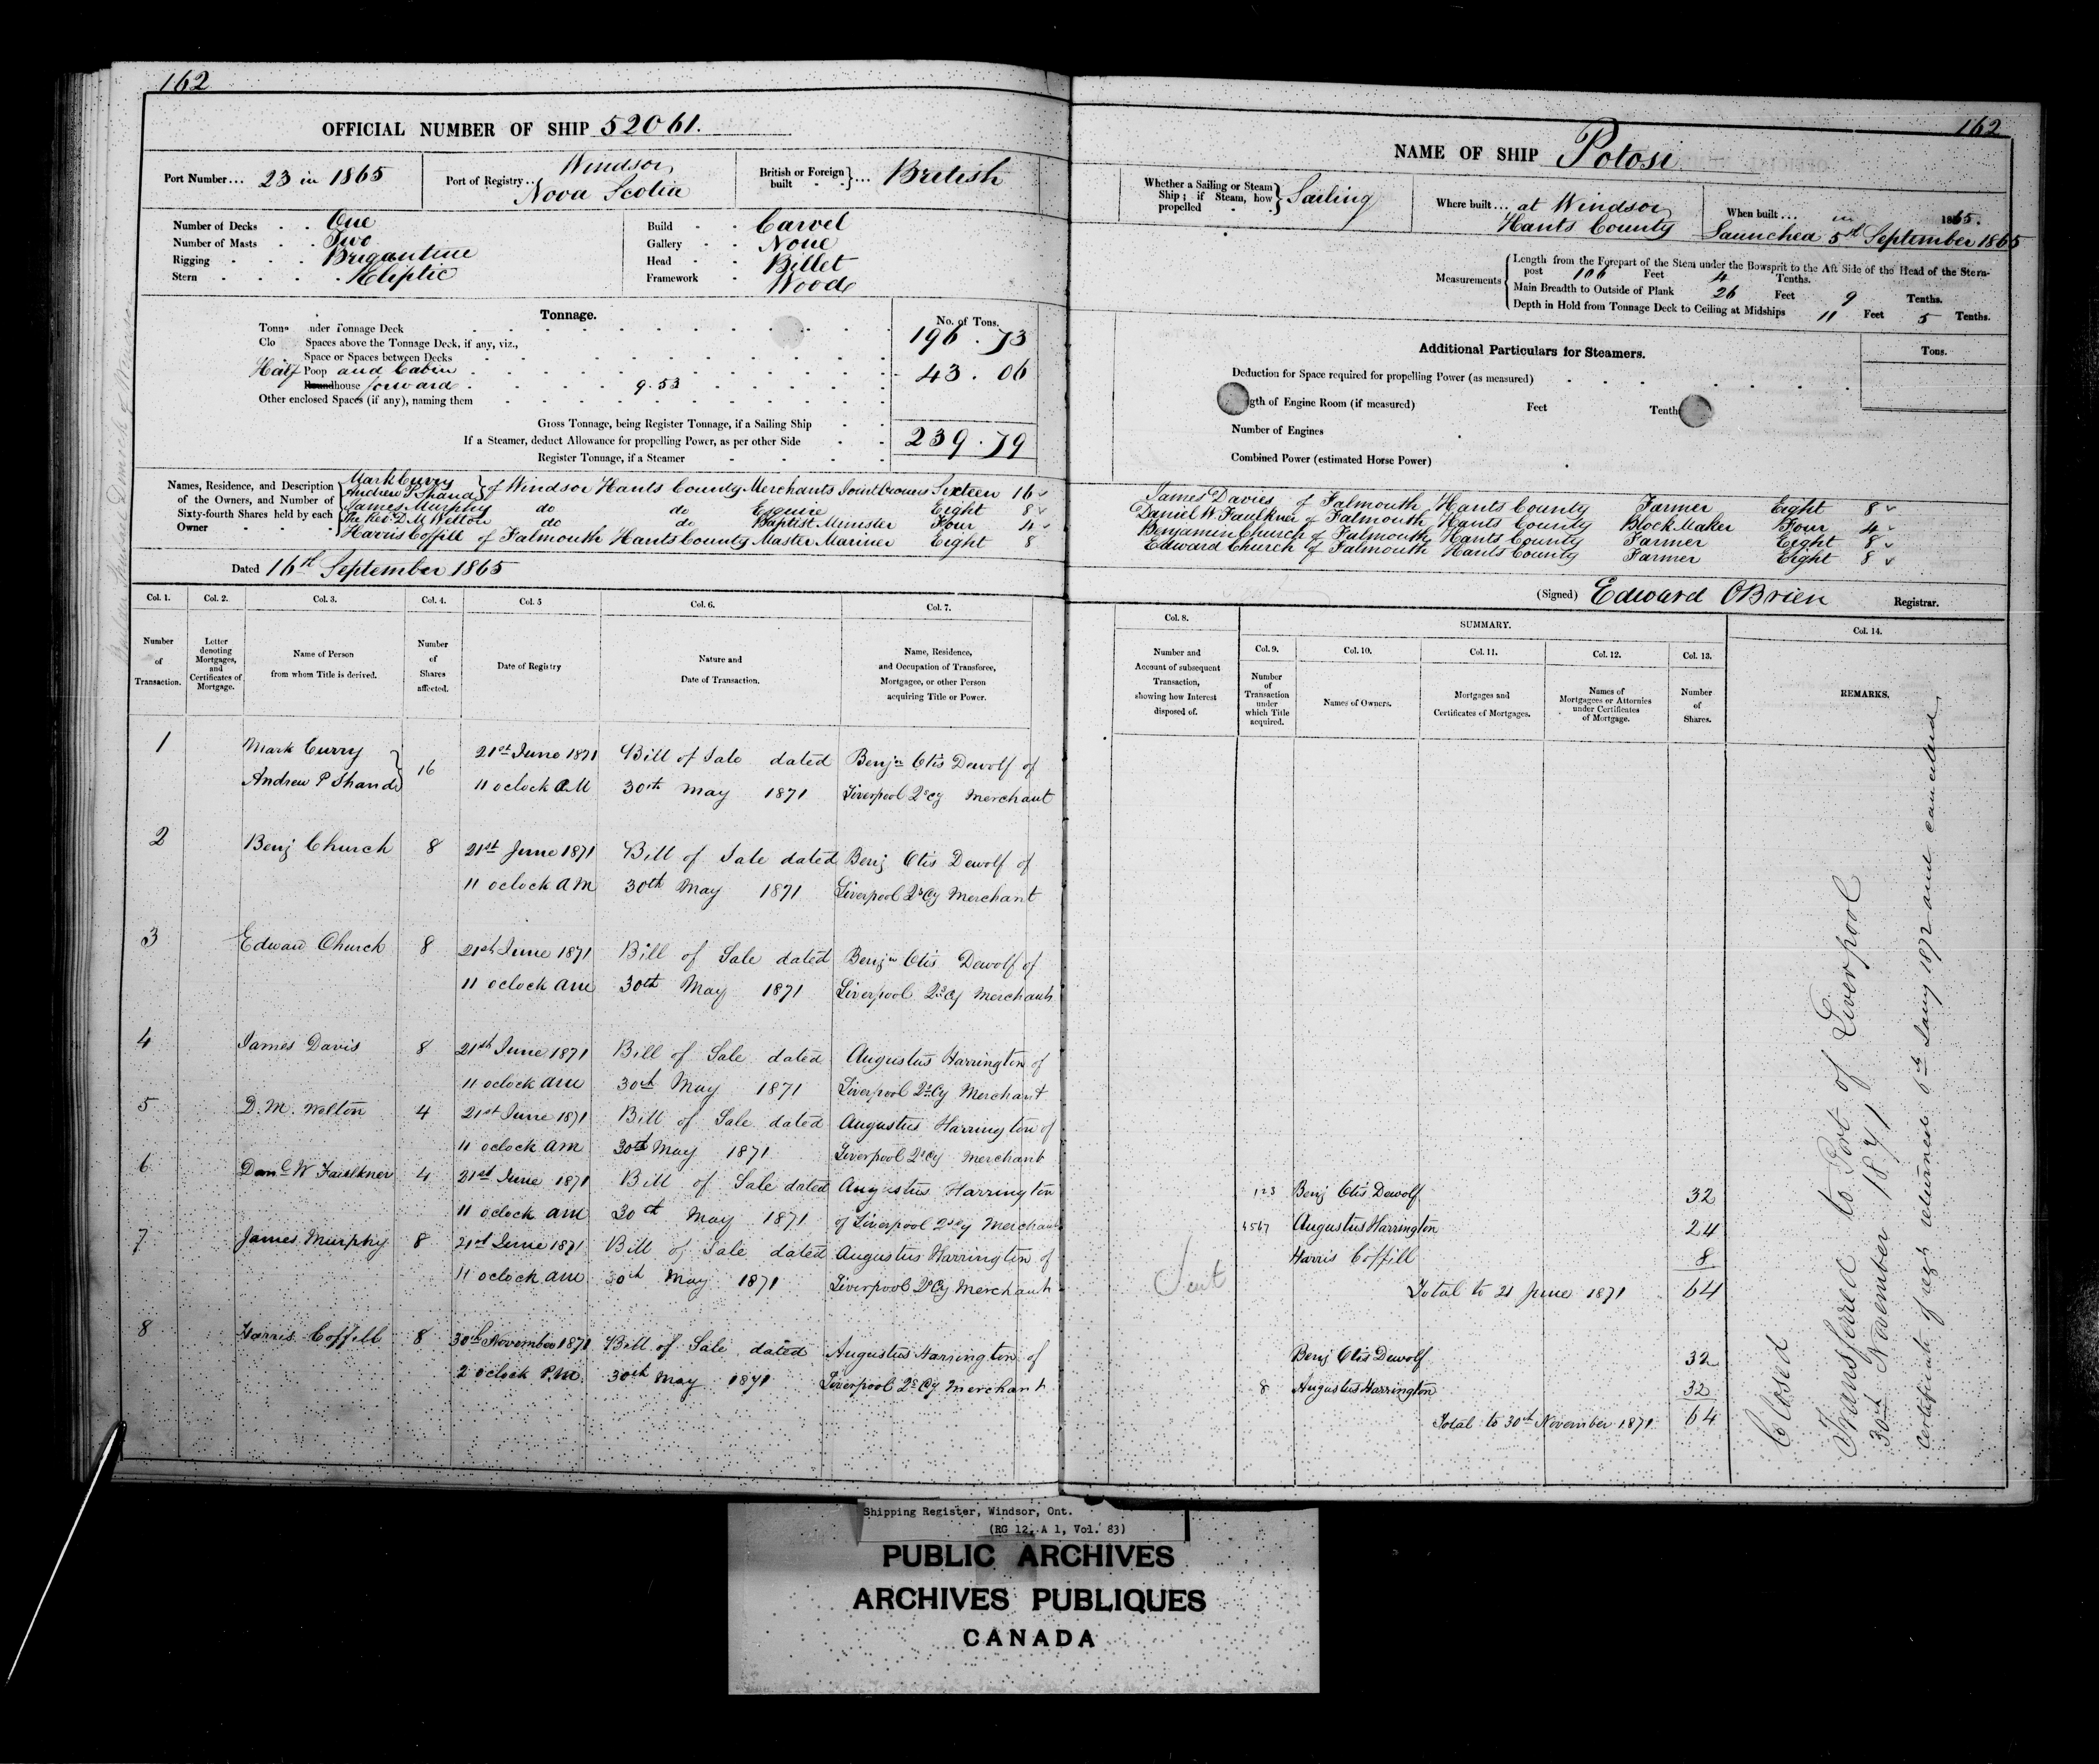 162
OFFICIAL NUMBER OF SHIP 52061.
Port Number... 23 in 1865
Port of Registry... Windsor
Nova Scotia
British or Foreign built ... British
Number of Decks . . One
Number of Masts . . Two
Rigging . . . Brigantine
Stern . . . . Eliptic
Build . . Carvel
Gallery . . None
Head . . Billet
Framework . Wood
Tonnage.
No. of Tons.
nder Tonnage Deck 196.73
Clo Spaces above the Tonnage Deck, if any, viz.,
Space or Spaces between Decks
Half Poop and Cabin 43.06
house forward 9.53
Other enclosed Spaces (if any), naming them
Gross Tonnage, being Register Tonnage, if a Sailing Ship 239.79
If a Steamer, deduct Allowance for propelling Power, as per other Side
Register Tonnage, if a Steamer
Names, Residence, and Description of the Owners, and Number of Sixty-fourth Shares held by each Owner
Mark Curry
Andrew P Shand } of Windsor Hants County Merchants Joint Owners Sixteen 16
James Murphy do do Esquire Eight 8
The Rev. D. M. Welton do do Baptist Minister Four 4
Harris Coffill of Falmouth Hants County Master Mariner Eight 8
Dated 16th September 1865
Col. 1. Col. 2. Col. 3. Col. 4. Col. 5 Col. 6. Col. 7.
Number of Transaction.
Letter denoting Mortgages, and Certificates of Mortgage.
Name of Person from whom Title is derived.
Number of Shares affected.
Date of Registry
Nature and Date of Transaction.
Name, Residence, and Occupation of Transferee, Mortgagee, or other Person acquiring Title or Power.
1 Mark Curry } 16 21st June 1871 Bill of Sale dated Benjn Otis Dewolf of
Andrew P Shand 11 oclock AM 30th May 1871 Liverpool Qs Cy Merchant
2 Benj Church 8 21st June 1871 Bill of Sale dated Benj Otis Dewolf of
11 oclock AM 30th May 1871 Liverpool Qs Cy Merchant
3 Edward Church 8 21st June 1871 Bill of Sale dated Benjn Otis Dewolf of
11 oclock am 30th May 1871 Liverpool Qs Cy Merchant
4 James Davis 8 21st June 1871 Bill of Sale dated Augustus Harrington of
11 oclock am 30th May 1871 Liverpool Qs Cy Merchant
5 D. M. Welton 4 21st June 1871 Bill of Sale dated Augustus Harrington of
11 oclock am 30th May 1871 Liverpool Qs Cy Merchant
6 Danl W Faulkner 4 21st June 1871 Bill of Sale dated Augustus Harrington
11 oclock am 30th May 1871 of Liverpool Qs Cy Merchant
7 James Murphy 8 21st June 1871 Bill of Sale dated Augustus Harrington of
11 oclock am 30th May 1871 Liverpool Qs Cy Merchant
8 Harris Coffill 8 30th November 1871 Bill of Sale dated Augustus Harrington of
2 oclock P.M. 30th May 1871 Liverpool Qs Cy Merchant
162
NAME OF SHIP Potosi
Whether a Sailing or Steam Ship; if Steam, how propelled } Sailing
Where built... at Windsor
Hants County
When built... in 1865.
Launched 5th September 1865
Measurements
Length from the Forepart of the Stem under the Bowsprit to the Aft Side of the Head of the Stern-
post 106 Feet 4 Tenths.
Main Breadth to Outside of Plank 26 Feet 9 Tenths.
Depth in Hold from Tonnage Deck to Ceiling at Midships 11 Feet 5 Tenths.
Additional Particulars for Steamers.
Tons.
Deduction for Space required for propelling Power (as measured)
gth of Engine Room (if measured) Feet Tenth
Number of Engines
Combined Power (estimated Horse Power)
James Davies of Falmouth Hants County Farmer Eight 8
Daniel W. Faulkner of Falmouth Hants County Block Maker Four 4
Benjamin Church of Falmouth Hants County Farmer Eight 8
Edward Church of Falmouth Hants County Farmer Eight 8
(Signed) Edward OBrien Registrar.
Col. 8. SUMMARY. Col. 14.
Col. 9. Col. 10. Col. 11. Col. 12. Col. 13.
Number and Account of subsequent Transaction, showing how Interest disposed of.
Number of Transaction under which Title acquired.
Names of Owners.
Mortgages and Certificates of Mortgages.
Names of Mortgagees or Attornies under Certificates of Mortgage.
Number of Shares.
REMARKS.
123 Benj Otis Dewolf 32
4567 Augustus Harrington 24
Harris Coffill 8
Total to 21 June 1871 64
Sent
Benj Otis Dewolf 32
8 Augustus Harrington 32
Total to 30th November 1871 64
Closed
Transferred to Port of Liverpool
30th November 1871
Certificate of regy returned 6th Jany 1872 and cancelled
Shipping Register, Windsor, Ont.
(RG 12, A 1, Vol. 83)
PUBLIC ARCHIVES
ARCHIVES PUBLIQUES
CANADA